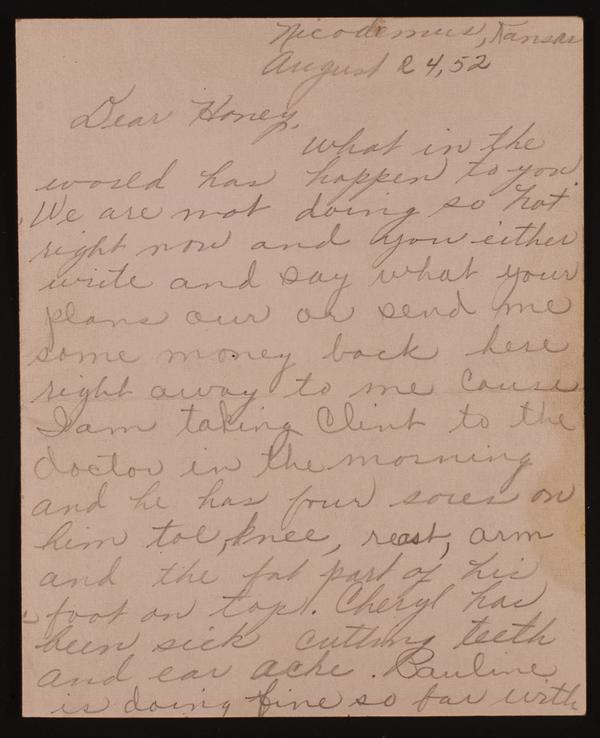 Nicodemus, Kansas
August 24, 52
Dear Honey,
What in the
world has happen to you
We are not doing so hot
right now and you either
write and say what your
plans our or send me
some money back here
right away to me cause
I am taking Clint to the
doctor in the morning
and he has four sores on
him toe, knee, reast, arm
and the fat part of his
foot on top. Cheryl has
been sick cutting teeth
and ear ache. Pauline
is doing fine so far with